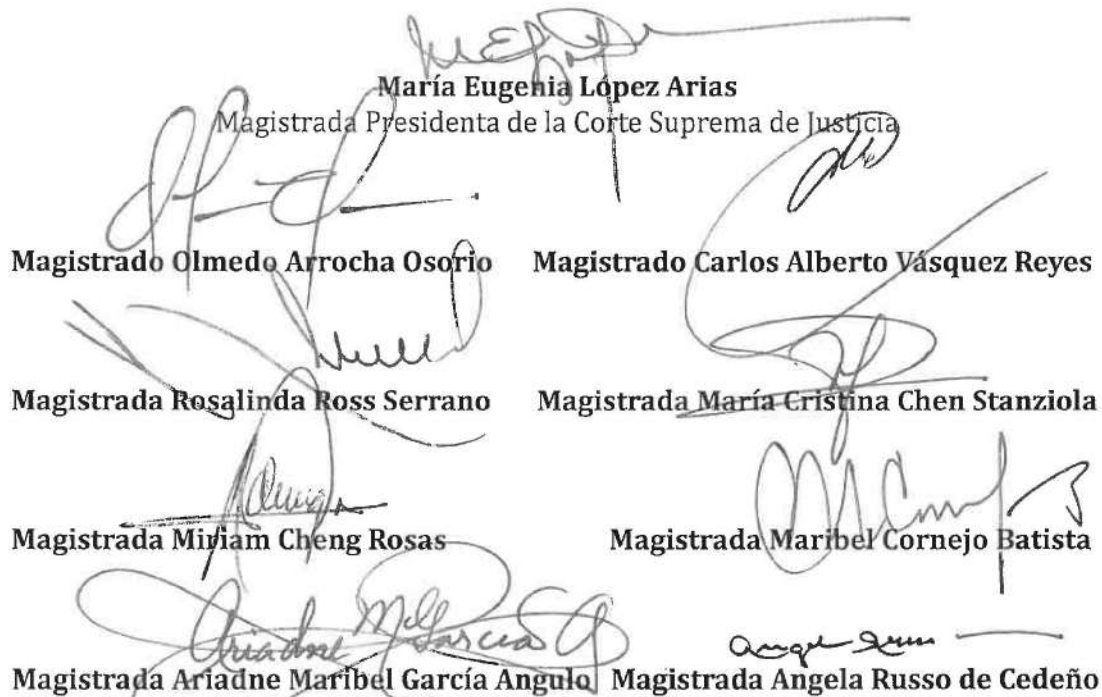 María Eugenia López Arias
Magistrada Presidenta de la Corte Suprema de Justicia
Magistrado Olmedo Arrocha Osorio Magistrado Carlos Alberto Vásquez Reyes
Magistrada Rosalinda Ross Serrano Magistrada María Cristina Chen Stanziola
Magistrada Miriam Cheng Rosas Magistrada Maribel Cornejo Batista
Ariadne Ml García
Magistrada Ariadne Maribel García Angulo Magistrada Angela Russo de Cedeño